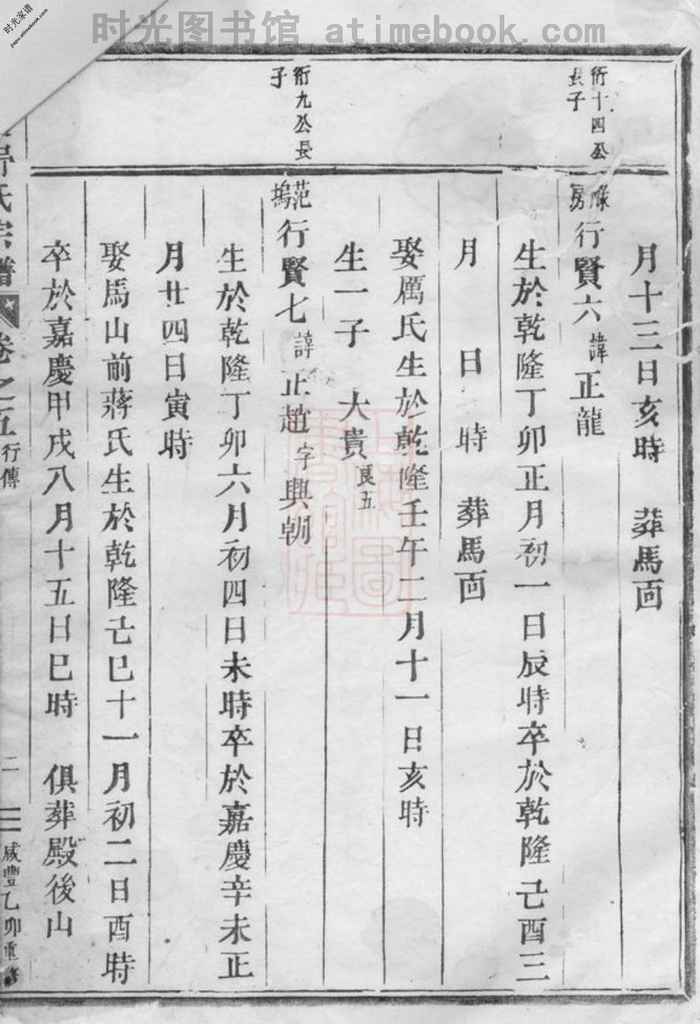 时光图书馆 atimebook.com
时光家谱
www.atimebook.com
衍十四公
長子
月十三日亥時 葬馬面
房
行賢六 諱 正龍
生於乾隆丁卯正月初一日辰時卒於乾隆己酉三
月 日 時 葬馬面
娶厲氏生於乾隆壬午二月十一日亥時
生一子 大貴 良五
衍九公長
子
范塢
行賢七 諱 正趙 字 興朝
生於乾隆丁卯六月初四日未時卒於嘉慶辛未正
月廿四日寅時
娶馬山前蔣氏生於乾隆己巳十一月初二日酉時
卒於嘉慶甲戌八月十五日巳時 俱葬殿後山
氏宗譜 卷之五 行傳 二 咸豐乙卯重修